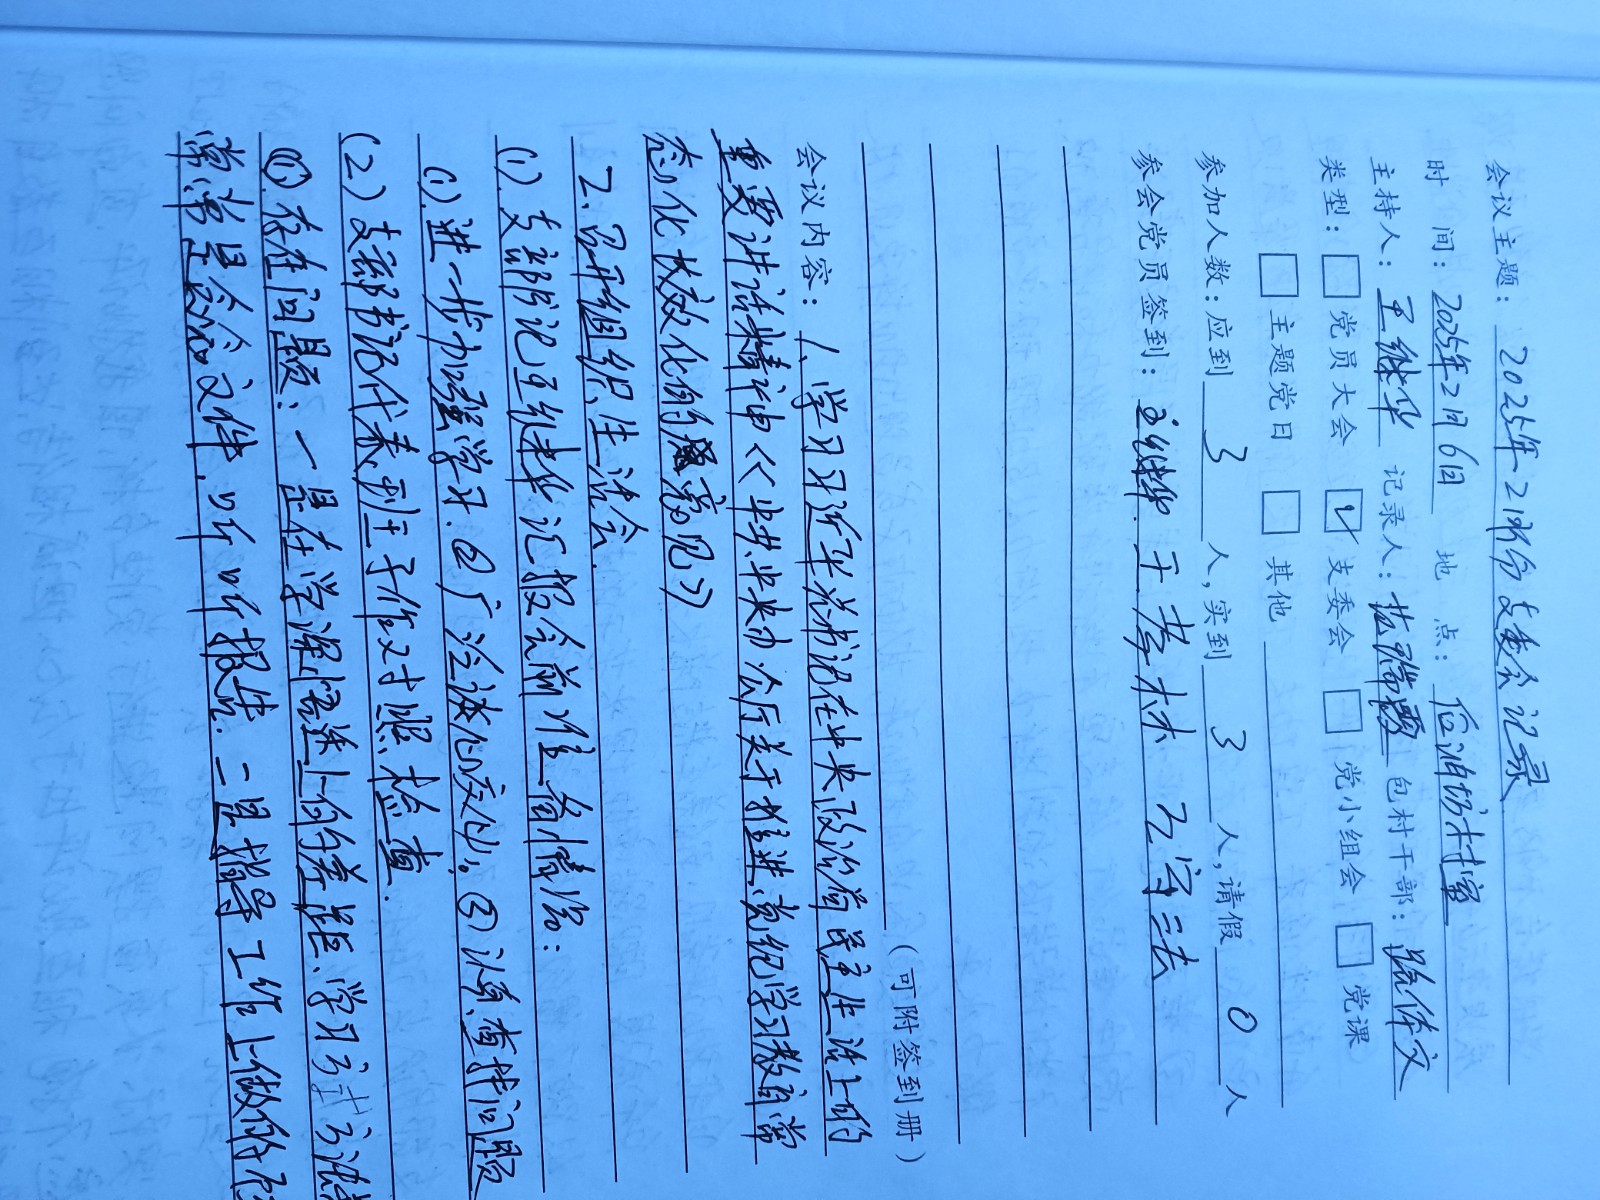 会议主题：2025年2月份支委会记录
时 间：2025年2月6日 地 点：后油坊村室
主持人：王继华 记录人：张瑞霞 包村干部：文
类型：□党员大会 ☑支委会 □党小组会 □党课
□主题党日 □其他
参加人数：应到 3 人，实到 3 人，请假 0 人
参会党员签到：王继华 于孝林
（可附签到册）
会议内容：1、学习习近平总书记在中央政治局民主生活上的
重要讲话精神《中共中央办公厅关于推进党纪学习教育常
态化长效化的意见》
2、召开组织生活会.
(1). 支部书记王继华汇报会前准备情况：
①.进一步加强学习.②广泛谈心交心，③认真查找问题
(2)支部书记代表班子作对照检查.
①.存在问题：一是在学深悟透上的差距、学习方式方法
常常是念念文件、听听报告.二是指导工作上做的